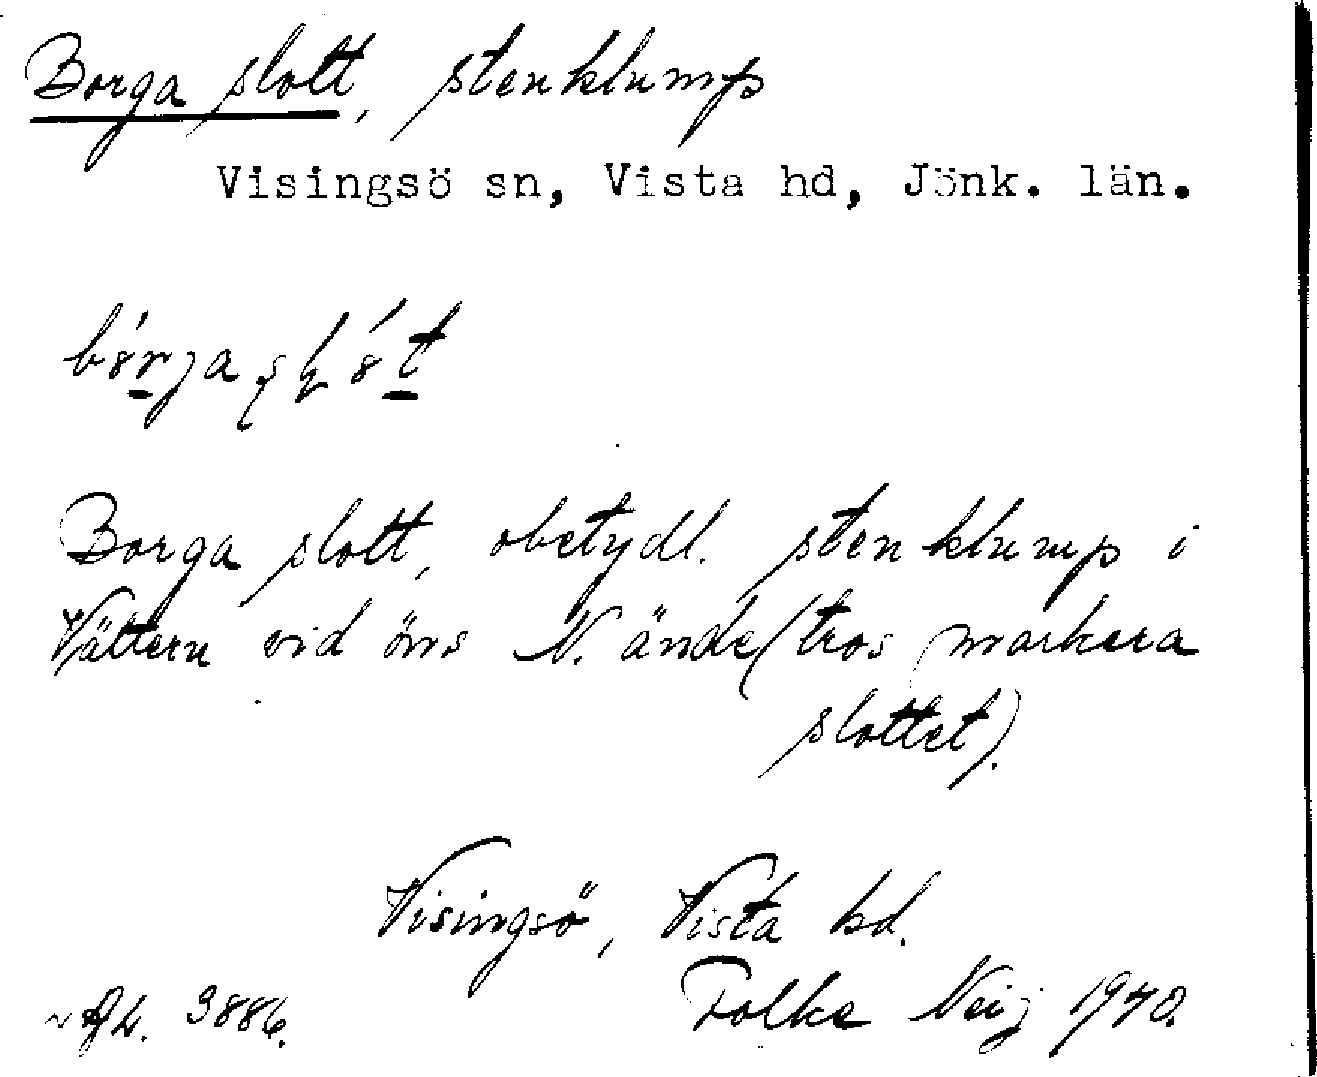 Borga slott, stenklump
Visingsö sn, Vista hd, Jönk. län.
Borga slott, obetydl. stenklump i
Vättern vid öns N. ände (tros markera
slottet).
Visingsö, Vista hd.
3886. Folke Neij 1940.